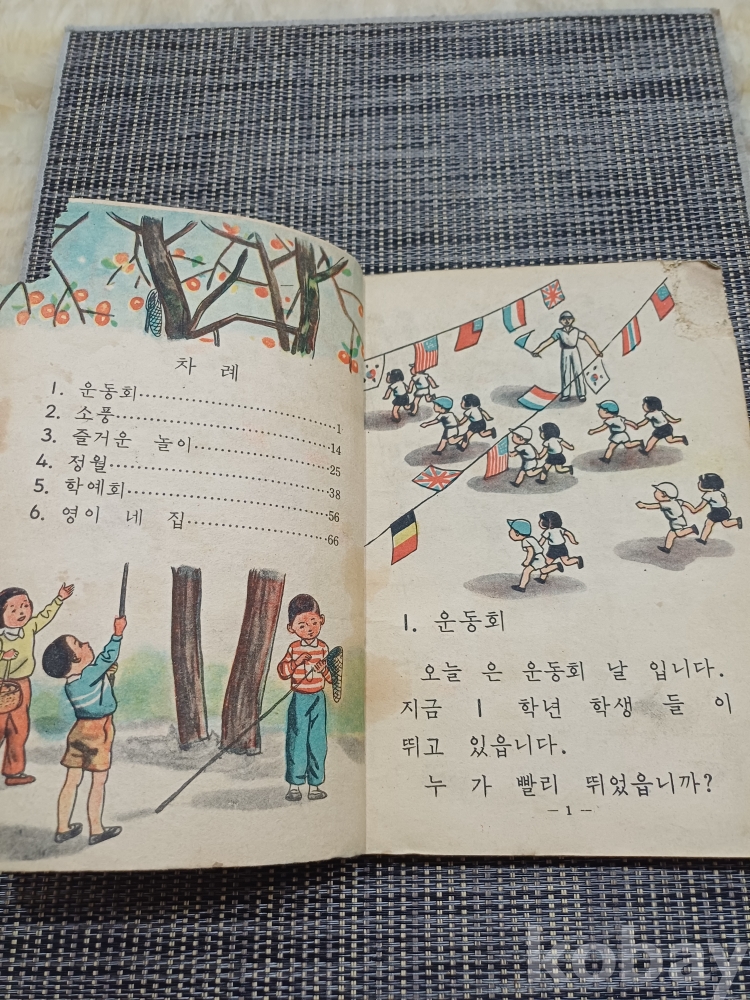 차 례
1. 운동회 1
2. 소풍 14
3. 즐거운 놀이 25
4. 정월 38
5. 학예회 56
6. 영이 네 집 66
1. 운동회
오늘 은 운동회 날 입니다.
지금 1 학년 학생 들 이
뛰고 있읍니다.
누 가 빨리 뛰었읍니까?
— 1 —
kobay